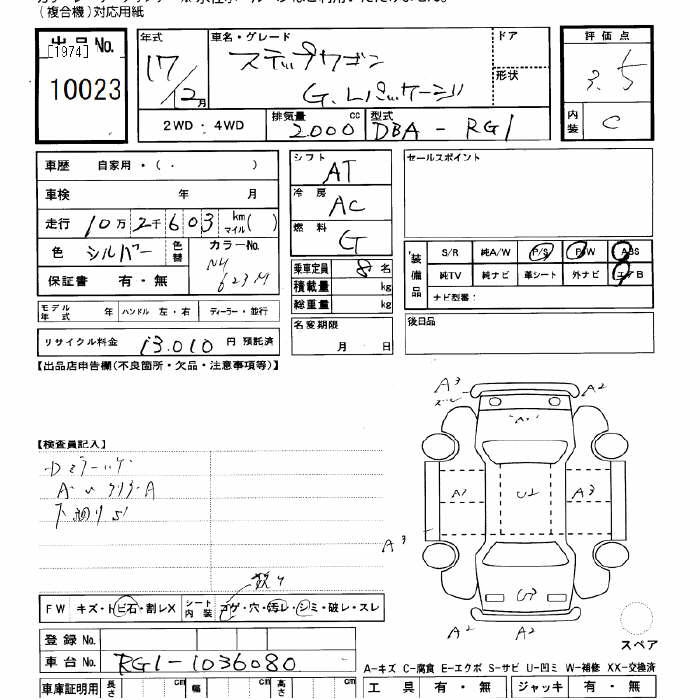 (複合機)対応用紙
出品 No.
[1974]
10023
年式
17/12月
車名・グレード
ステップワゴン
G.Lパッケージ
ドア
形状
評価点
3.5
内装
C
2WD ・ 4WD
排気量 2000 cc
型式 DBA - RG1
車歴 自家用・( ・ )
車検 年 月
走行 10万2千603 km マイル( )
色 シルバー
色替
カラーNo.
NH
623M
保証書 有・無
シフト AT
冷房 AC
燃料 G
乗車定員 8名
積載量 kg
総重量 kg
セールスポイント
装備品
S/R 純A/W P/S P/W ABS
純TV 純ナビ 革シート 外ナビ エアB
ナビ型番:
モデル年式 年 ハンドル 左・右 ディーラー・並行
リサイクル料金 13.010 円 預託済
名変期限
月 日
後日品
【出品店申告欄(不良箇所・欠品・注意事項等)】
【検査員記入】
A3
A2
A1
A2
U2
A3
A3
U3
A2
A2
FW キズ・トビ石・割レX シート内装 コゲ・穴・汚レ・シミ・破レ・スレ
登録 No.
車台 No. RG1-1036080
スペア
A−キズ C−腐食 E−エクボ S−サビ U−凹ミ W−補修 XX−交換済
車庫証明用 長さ cm 幅 cm 高さ cm
工具 有・無 ジャッキ 有・無